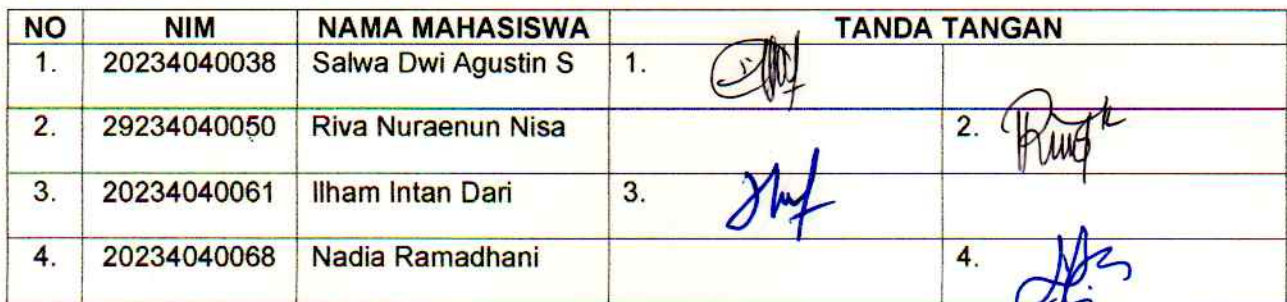 NO NIM NAMA MAHASISWA TANDA TANGAN
1. 20234040038 Salwa Dwi Agustin S 1.
2. 29234040050 Riva Nuraenun Nisa 2.
3. 20234040061 Ilham Intan Dari 3.
4. 20234040068 Nadia Ramadhani 4.